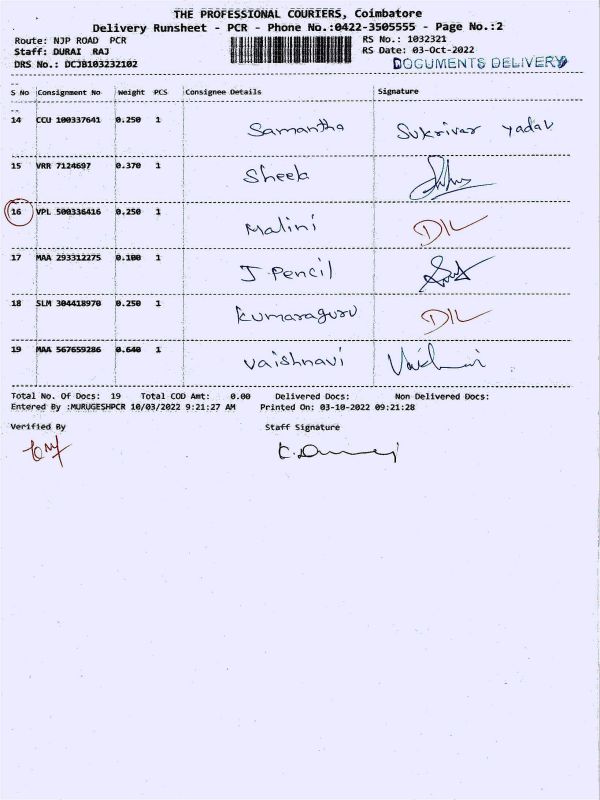 THE PROFESSIONAL COURIERS, Coimbatore
Delivery Runsheet - PCR - Phone No.:0422-3505555 - Page No.:2
Route: NJP ROAD PCR RS No.: 1032321
Staff: DURAI RAJ RS Date: 03-Oct-2022
DRS No.: DCJB103232102 DOCUMENTS DELIVERY
S No Consignment No Weight PCS Consignee Details Signature
14 CCU 100337641 0.250 1 Samantha Sukrivar Yadav
15 VRR 7124697 0.370 1 Sheela
16 VPL 500336416 0.250 1 Malini D/L
17 MAA 293312275 0.100 1 J Pencil
18 SLM 304418970 0.250 1 Kumaraguru D/L
19 MAA 567659286 0.640 1 Vaishnavi
Total No. Of Docs: 19 Total COD Amt: 0.00 Delivered Docs: Non Delivered Docs:
Entered By :MURUGESHPCR 10/03/2022 9:21:27 AM Printed On: 03-10-2022 09:21:28
Verified By Staff Signature